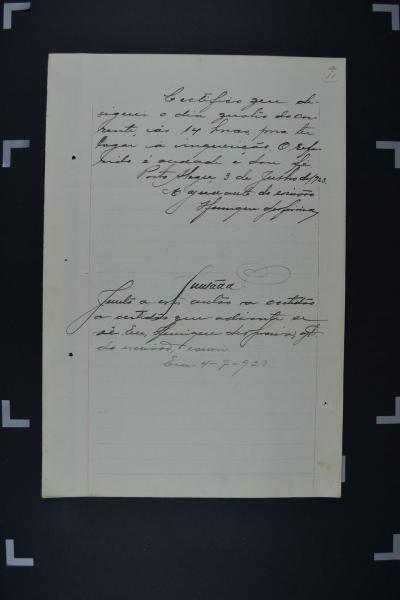 11
Certifico que de-
signei o dia quatro do cor-
rente, ás 14 horas, para ter
logar a inquirição. O refe-
rido é verdade e dou fé
Porto Alegre 3 de Julho de 1923.
O ajudante do escrivão
Henrique
Juntada
Junto a estes autos a certidão
a certidão que adiante se
vê. Eu, Henrique
do escrivão, escrevi.
Em 4-7-923